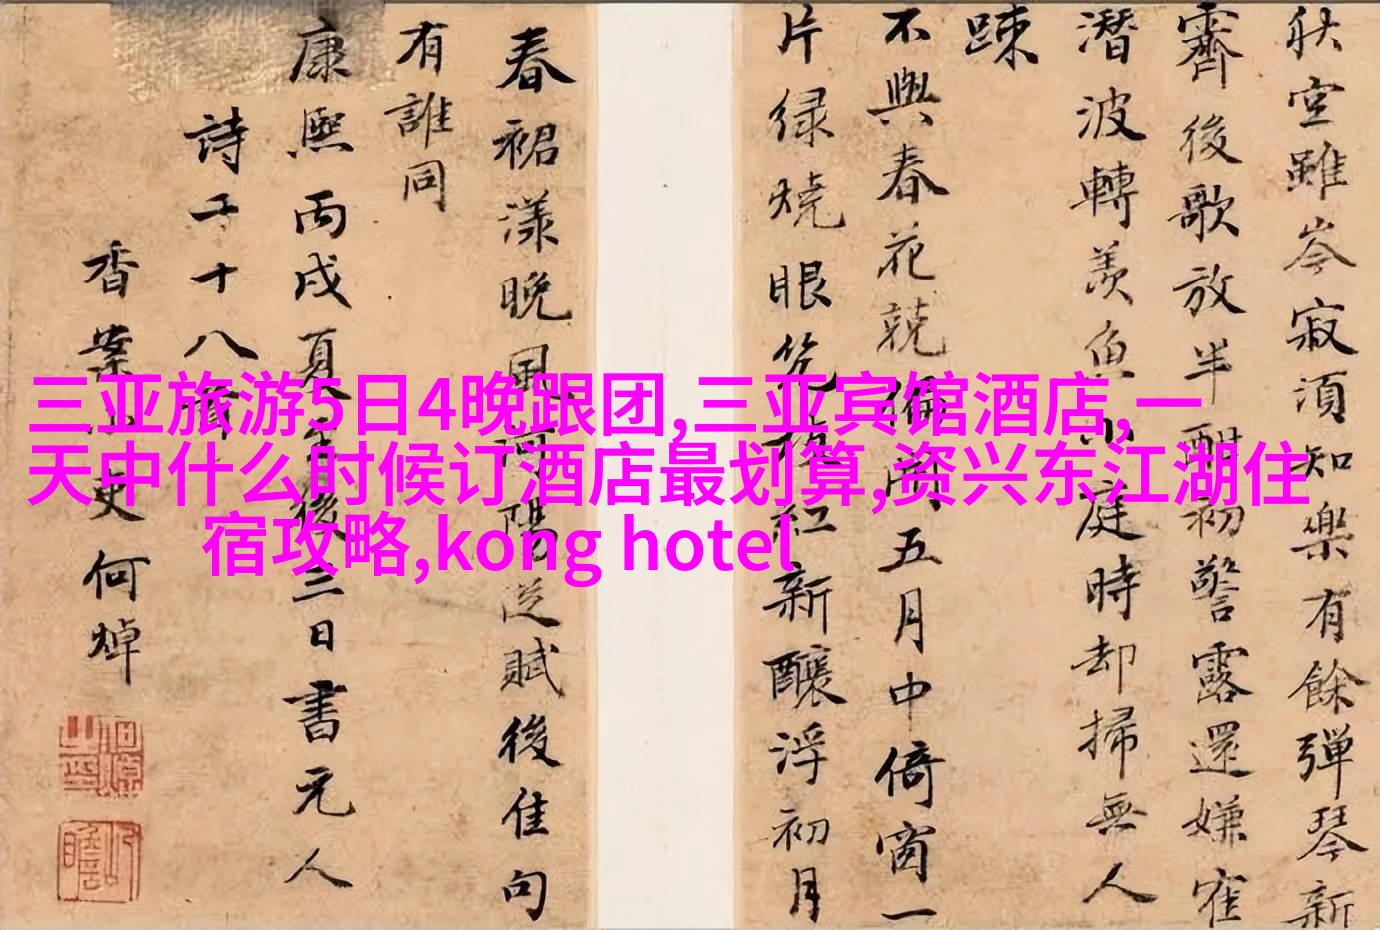 三亚旅游5日4晚跟团,三亚宾馆酒店,一
天中什么时候订酒店最划算,资兴东江湖住
宿攻略,kong hotel
秋空雖岑寂須知樂有餘彈琴新
霽後歌放半酣初警露還嫌寉
潛波轉羨魚小庭時却掃無人
踈
不與春花競偏開五月中倚窗一
片緑燒眼枝紅新釀浮初月
春裙漾晚風河陽從賦後佳句
有誰同
康熙丙戌夏至後三日書元人
詩二十八首
香案小吏何焯